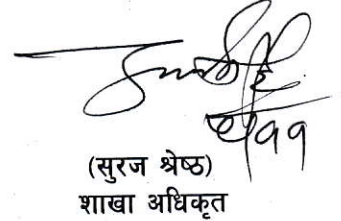 (सुरज श्रेष्ठ)
शाखा अधिकृत